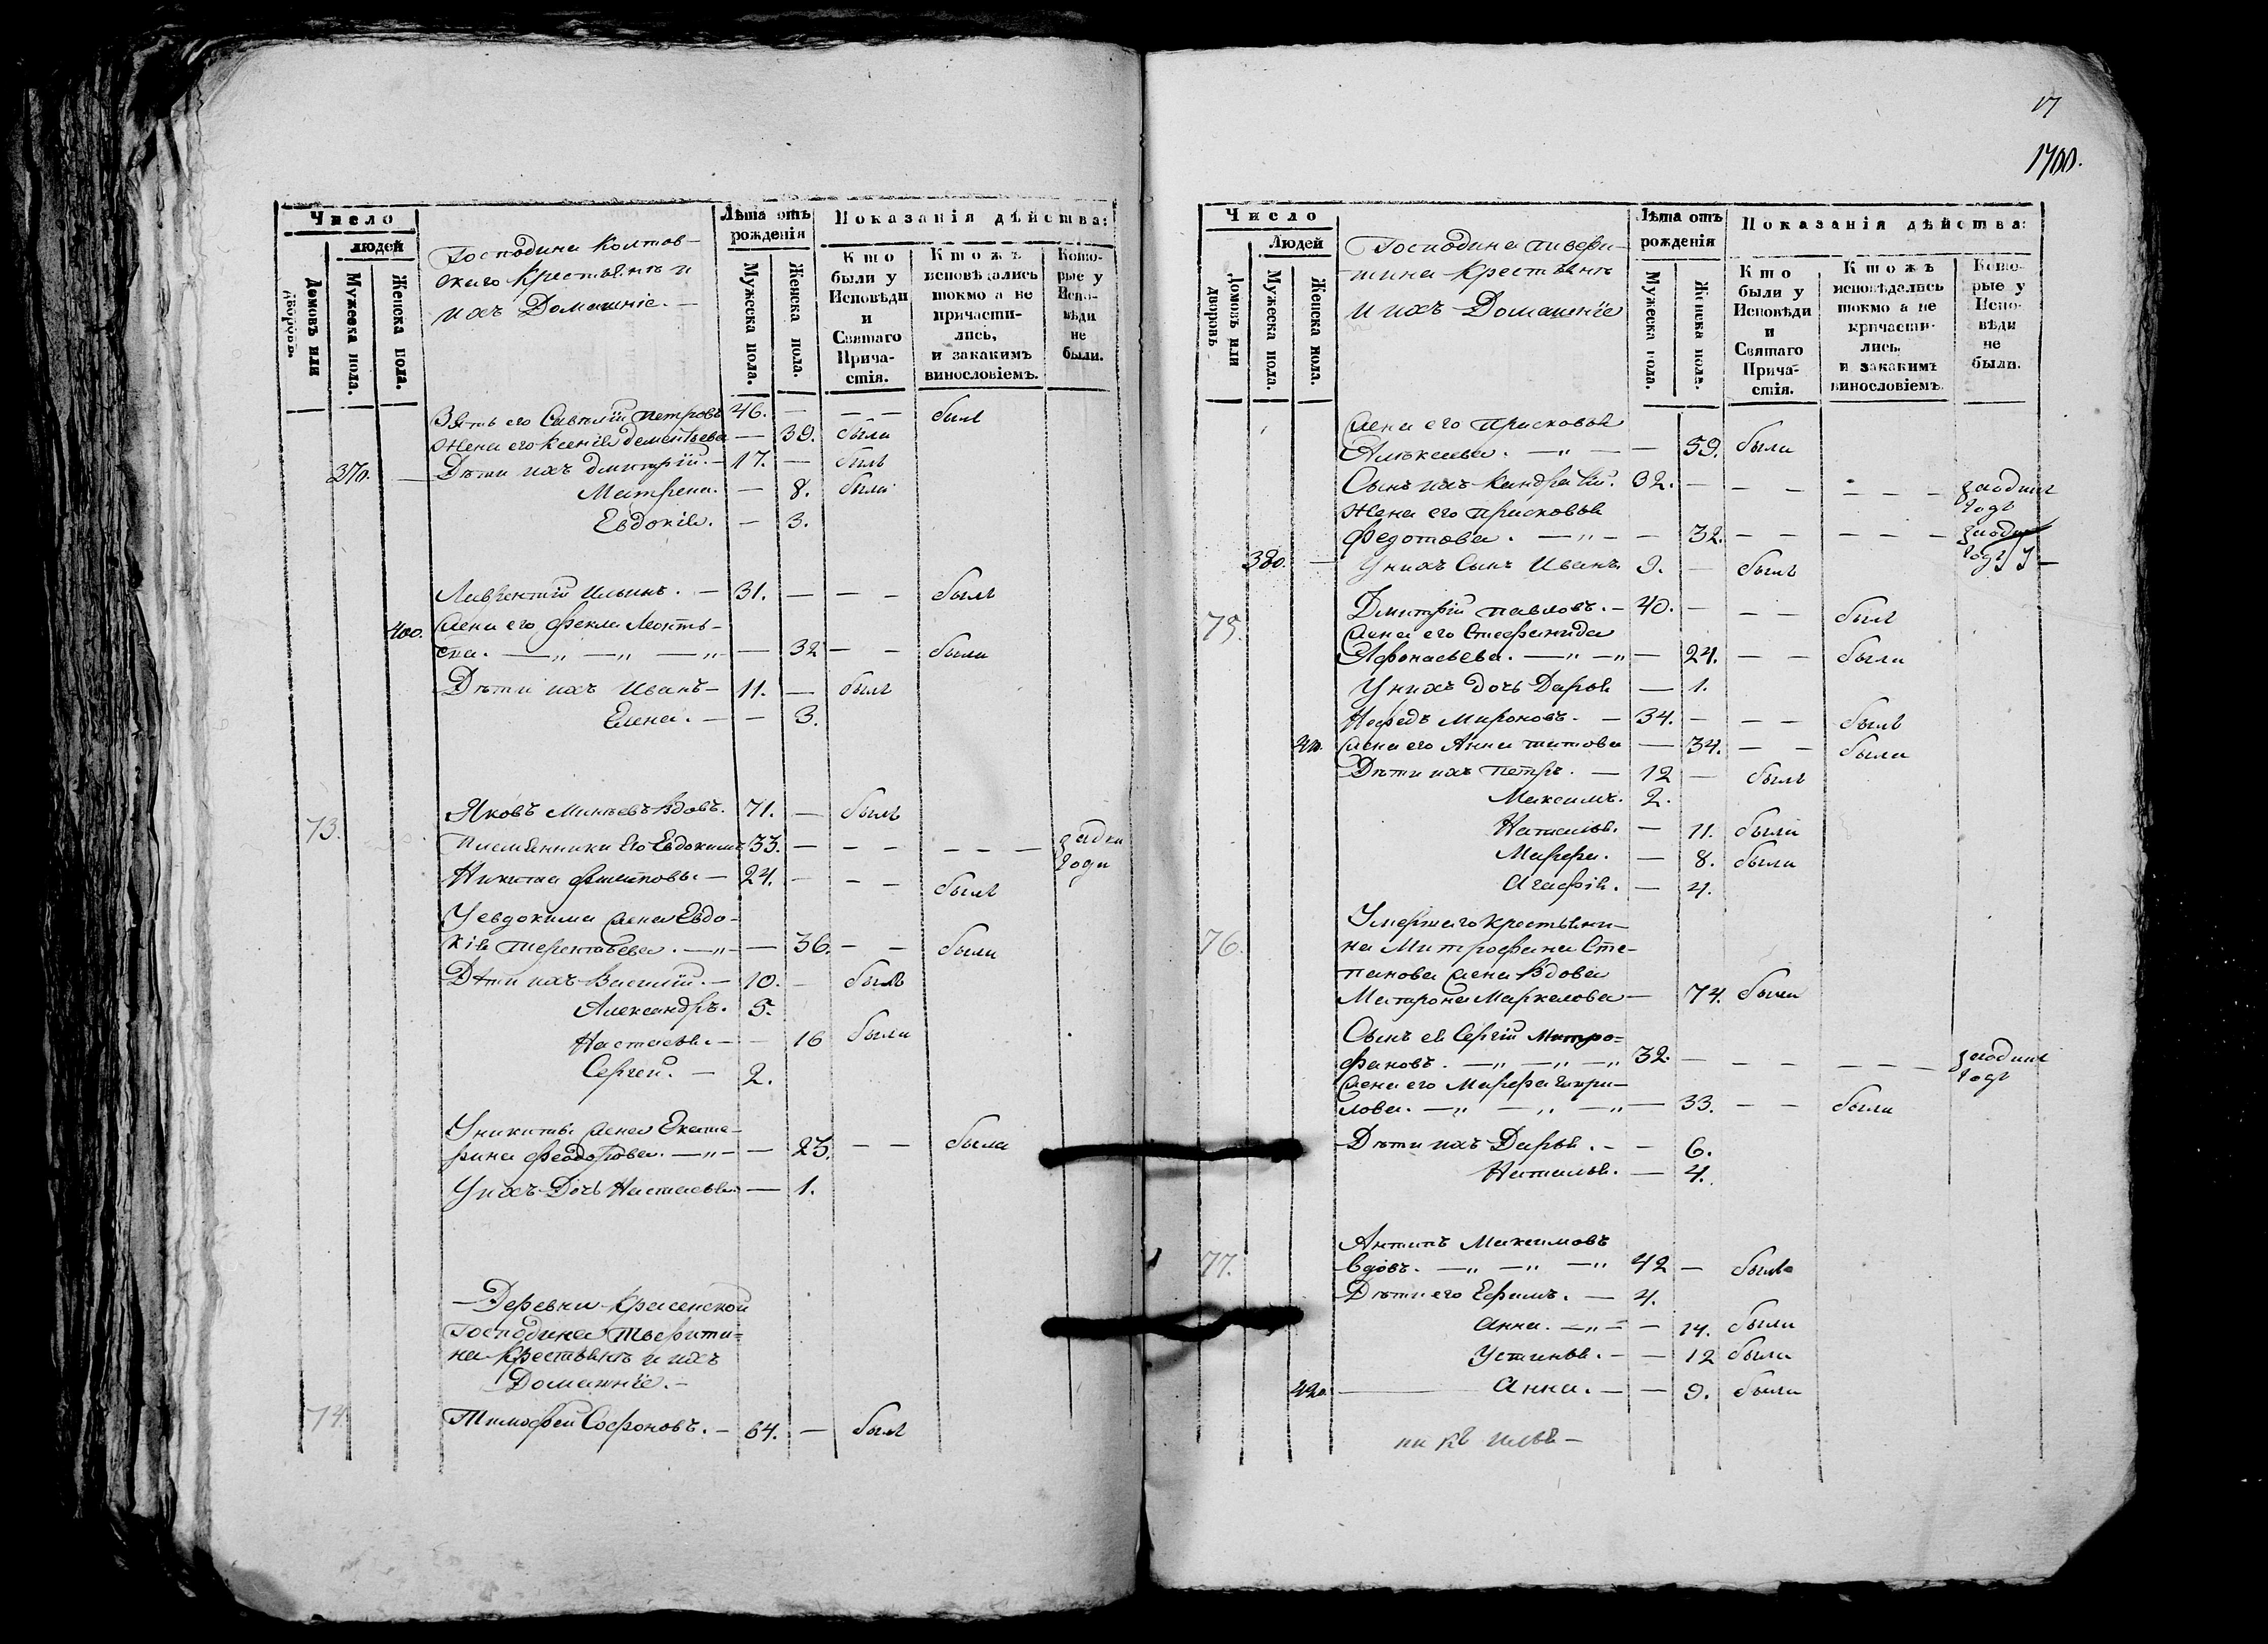 Число
людей
Домовъ или дворовъ
Мужеска пола.
Женска пола.
Господина Колтов-
скаго Крестьянъ и
ихъ Домашніе. —
Лѣта отъ рожденія
Мужеска пола.
Женска пола.
Показанія дѣйства:
Кто были у Исповѣди и Святаго Прича- стія.
Ктожъ исповѣдались токмо а не причасти- лись, и закакимъ винословіемъ.
Кото- рые у Испо- вѣди не были.
Зять его Савелій Петровъ 46. — — — былъ
Жена его Ксенія Дементьева — 39. была
370. — Дѣти ихъ Дмитрій. — 17. — былъ
Матрена. — 8. была
Евдокія. — 3.
Лаврентій Ильинъ. — 31. — — — былъ
400. Жена его Фекла Леонть-
ева. — „ — „ — „ — 32 — — была
Дѣти ихъ Иванъ — 11. — былъ
Елена. — — 3.
73. Яковъ Минѣевъ Вдовъ. 71. — былъ
Племянники Его Евдокимъ 33. — — — — — — за два
года
Никита Филиповы. — 24. — — — былъ
У евдокима Жена Евдо-
кія Терентьева. — „ — — 36. — — была
Дѣти ихъ Василій. — 10. — былъ
Александръ. 5.
Настасья. — — 16 была
Сергей. — 2.
У никиты Жена Екате-
рина Феодорова. — „ — — 23. — — была
У нихъ Дочь Настасья — 1.
— Деревни Красенской
Господина Тверити-
на Крестьянъ и ихъ
Домашніе. —
74. Тимофей Софоновъ. — 64. — былъ
17
1700.
Число
Людей
Домовъ или дворовъ
Мужеска пола.
Женска пола.
Господина тивери-
тина Крестьянъ
и ихъ Домашніе
Лѣта отъ рожденія
Мужеска пола.
Женска пола.
Показанія дѣйства:
Кто были у Исповѣди и Святаго Прича- стія.
Ктожъ исповѣдались токмо а не причасти- лись, и закакимъ винословіемъ.
Кото- рые у Испо- вѣди не были.
Жена его Прасковья
Алексѣева. — „ — — 59. была
Сынъ ихъ Кандратій. 32. — — — — — — заодинъ
годъ
Жена его Прасковья
Федотова. — „ — — 32. — — — — — заодинъ
годъ
380. — У нихъ Сынъ Иванъ 9. — былъ
75. Дмитрій Павловъ. — 40. — — — былъ
Жена его Стефанида
Афонасьева. — „ — „ — 24. — — была
У нихъ дочь Дарья — 1.
Нефедъ Мироновъ. — 34. — — — былъ
410. Жена его Анна Титова — 34. — — была
Дѣти ихъ Петръ. — 12 — былъ
Максимъ. 2.
Наталья. — 11. была
Марфа. — 8. была
Агафія. — 4.
Умершаго крестьяни-
76. на Митрофана Сте-
панова Жена Вдова
Матрона Маркелова — 74. была
Сынъ ея Сергій Митро-
фановъ. — „ — „ — „ 32. — — — — — — заодинъ
годъ
Жена его Марфа Гаври-
лова. — „ — „ — „ — 33. — — была
Дѣти ихъ Дарья. — — 6.
Наталья. — 4.
Антипъ Максимовъ
77. вдовъ. — „ — „ — „ 42 — былъ
Дѣти его Ефимъ. — 4.
Анна. — „ — — 14. была
Устинья. — — 12 была
420. Анна. — — 9. была